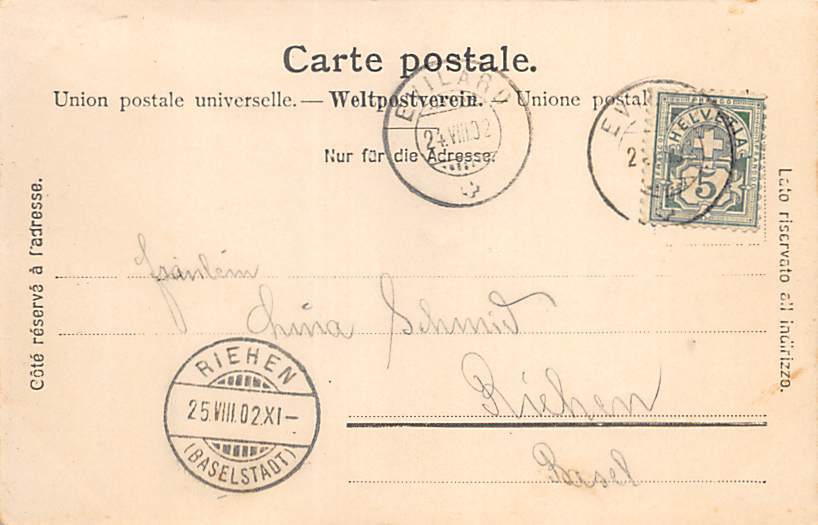 Carte postale.
Union postale universelle. — Weltpostverein. — Unione postal
Nur für die Adresse.
EVILARD
24.VIII.02
EV
2
HELVETIA
5
Côté réservé à l'adresse.
Lato riservato all'indirizzo.
Fräulein
Schmid
Riehen
Basel
RIEHEN
25.VIII.02.XI–
(BASELSTADT)